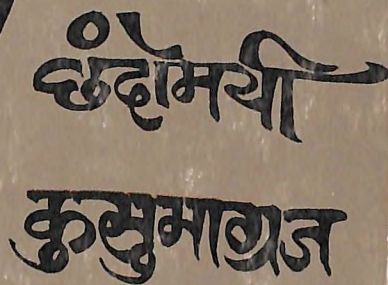 छंदोमयी
कुसुमाग्रज